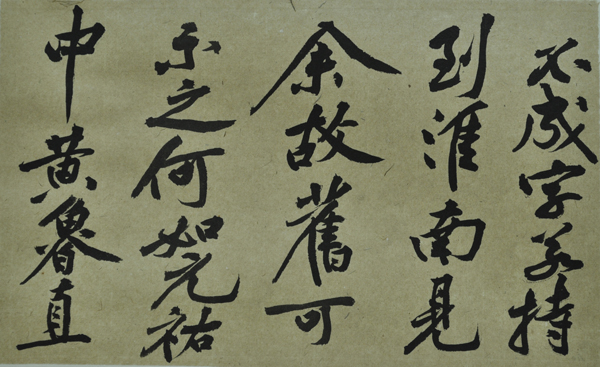 不成字若持
到淮南見
余故舊可
示之何如元祐
中黃魯直